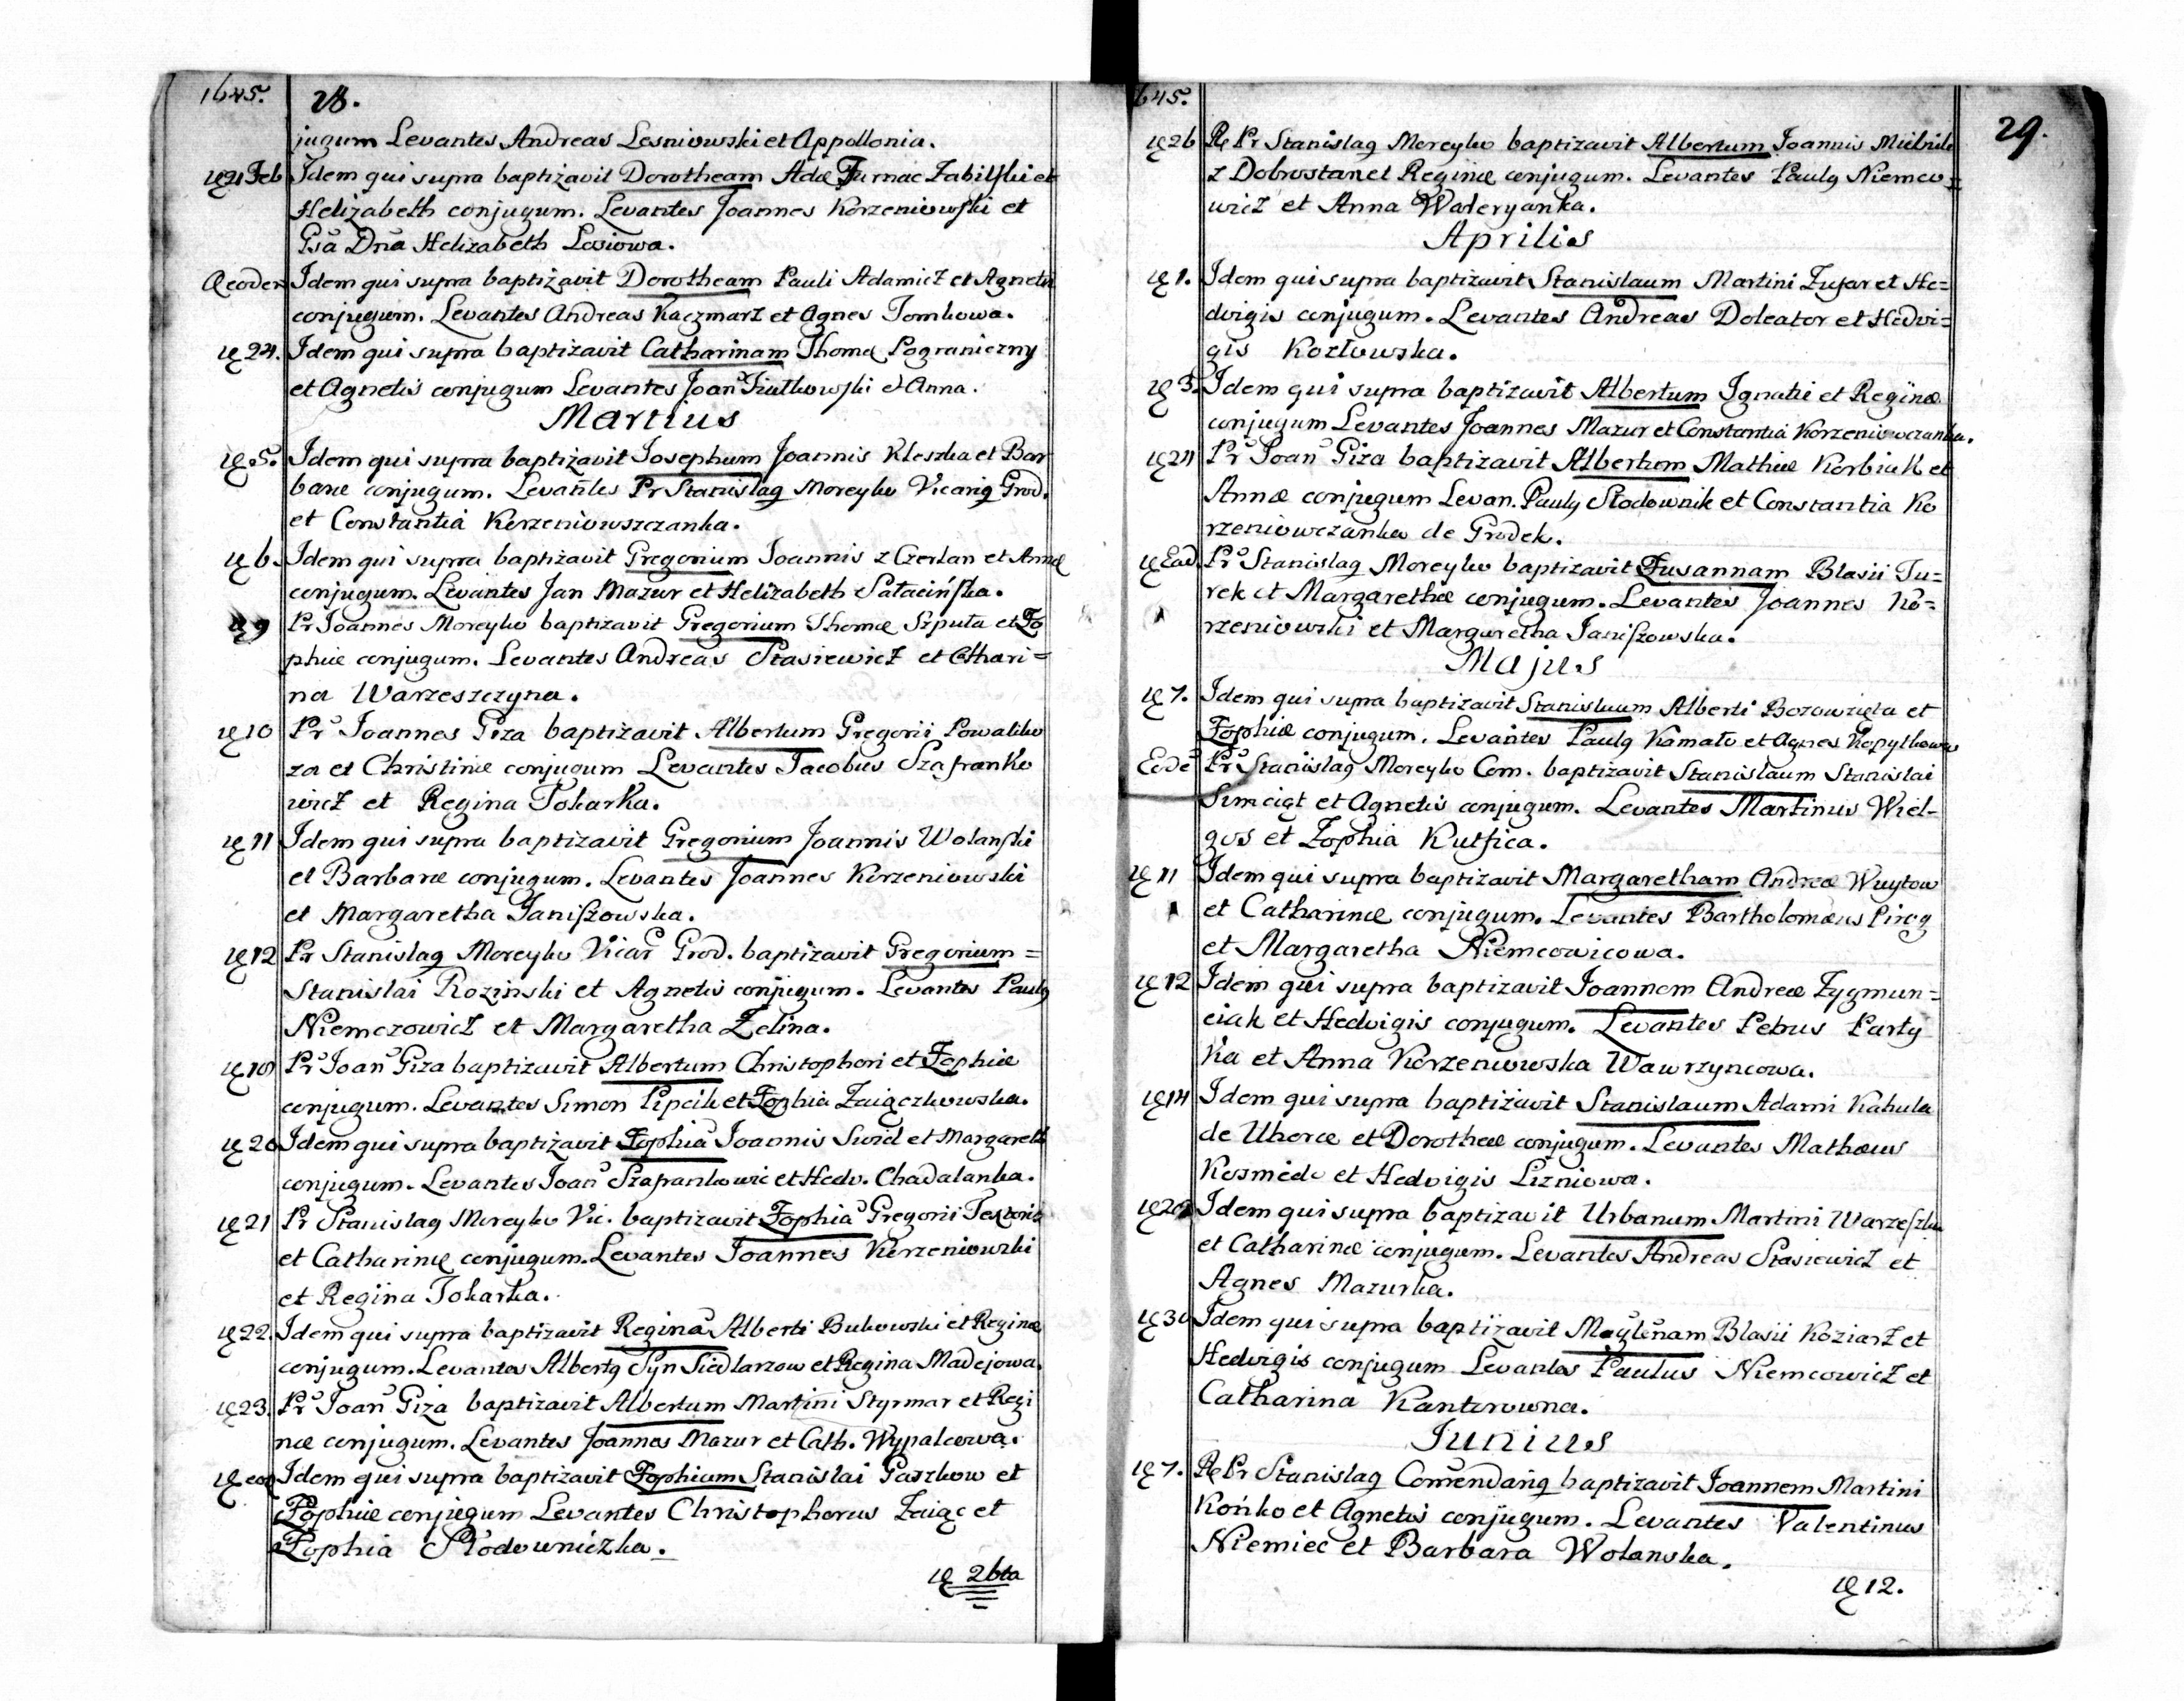 1645.
28.
jugum Levantes Andreas Lesniowski et Appollonia.
21 Feb Idem qui supra baptizavit Dorotheam Adæ Furnac Zabilski et
Helizabeth conjugum. Levantes Joannes Korzeniowski et
Gsa Dna Helizabeth Lesiowa.
Idem qui supra baptizavit Dorotheam Pauli Adamicz et Agnetis
conjugum. Levantes Andreas Kaczmarz et Agnes Tomkowa.
24. Idem qui supra baptizavit Catharinam Thomæ Pograniczny
et Agnetis conjugum Levantes Joan Fiutkowski et Anna.
Martius
5. Idem qui supra baptizavit Josephum Joannis Kleszka et Bar
baræ conjugum. Levantes Pr Stanislaq Moreyko Vicariq Grod.
et Constantia Korzeniowszczanka.
6. Idem qui supra baptizavit Gregorium Joannis z Czerlan et Annæ
conjugum. Levantes Jan Mazur et Helizabeth Sałacińska.
9 Pr Joannes Moreyko baptizavit Gregorium Thomæ Srputa et Zo
phiæ conjugum. Levantes Andreas Stasiewicz et Cathari=
na Warzeszczyna.
10 Pr Joannes Giza baptizavit Albertum Gregorii Powaliko
za et Christinæ conjugum Levantes Jacobus Szafranko
wicz et Regina Tokarka.
11 Idem qui supra baptizavit Gregorium Joannis Wolanski
et Barbaræ conjugum. Levantes Joannes Korzeniowski
et Margaretha Janiszowska.
12 Pr Stanislaq Moreyko Vicar Grod. baptizavit Gregorium =
Stanislai Rozinski et Agnetis conjugum. Levantes Paulq
Niemczowicz et Margaretha Zelina.
Pr Joan Giza baptizavit Albertum Christophori et Zophiæ
conjugum. Levantes Simon Pipcik et Zophia Zaiączkowska.
20 Idem qui supra baptizavit Zophia Joannis Swid et Margareth
conjugum. Levantes Joan Szafrankowic et Hedv. Chadalanka.
21 Pr Stanislaq Moreyko Vic. baptizavit Zophia Gregorii Textoris
et Catharinæ conjugum. Levantes Joannes Korzeniowski
et Regina Tokarka.
22. Idem qui supra baptizavit Regina Alberti Bukowski et Reginæ
conjugum. Levantes Albertq Syn Siedlarzow et Regina Madejowa.
23. Pr Joan Giza baptizavit Albertum Martini Styrmar et Regi
næ conjugum. Levantes Joannes Mazur et Cath. Wypalcowa.
Idem qui supra baptizavit Zophium Stanislai Paszkow et
Zophiæ conjugum Levantes Christophorus Zaiąc et
Zophia Słodowniczka.
26ta
645.
29.
26 R Pr Stanislaq Moreyko baptizavit Albertum Joannis
z Dobrostan et Reginæ conjugum. Levantes Paulq Niemco=
wicz et Anna Waleryanka.
Aprilis
1. Idem qui supra baptizavit Stanislaum Martini Zugar et He=
dvigis conjugum. Levantes Andreas Doleator et Hedvi=
gis Kozłowska.
3. Idem qui supra baptizavit Albertum Ignatii et Reginæ
conjugum Levantes Joannes Mazur et Constantia Korzeniowczanka.
Pr Joan Giza baptizavit Albertum Mathiæ Korbiak et
Annæ conjugum Levan. Paulq Słodownik et Constantia Ko
rzeniowczanka de Grodek.
Ead. Pr Stanislaq Moreyko baptizavit Zusannam Blasii Tu=
rek et Margarethæ conjugum. Levantes Joannes Ko=
rzeniowski et Margaretha Janiszowska.
Majus
7. Idem qui supra baptizavit Stanislaum Alberti Bozowzięta et
Zophiæ conjugum. Levantes Paulq Kamało et Agnes Kopytkowa
Eode Pr Stanislaq Moreyko Com. baptizavit Stanislaum Stanislai
Simciąt et Agnetis conjugum. Levantes Martinus Wiel-
gos et Zophia Kutsica.
11 Idem qui supra baptizavit Margaretham Andreæ Wuytow
et Catharinæ conjugum. Levantes Bartholomæus Pirog
et Margaretha Niemcowicowa.
12 Idem qui supra baptizavit Joannem Andreæ Zygmun=
ciak et Hedvigis conjugum. Levantes Petrus Party
ka et Anna Korzeniowska Wawrzyncowa.
14 Idem qui supra baptizavit Stanislaum Adami Kahula
de Uhorce et Dorotheæ conjugum. Levantes Mathæus
Kosmido et Hedvigis Lizniowa.
Idem qui supra baptizavit Urbanum Martini Warzeszka
et Catharinæ conjugum. Levantes Andreas Stasiewicz et
Agnes Mazurka.
30 Idem qui supra baptizavit Magłenam Blasii Koziarz et
Hedvigis conjugum Levantes Paulus Niemcowicz et
Catharina Kantorowna.
Junius
7. R Pr Stanislaq Comendariq baptizavit Joannem Martini
Końko et Agnetis conjugum. Levantes Valentinus
Niemiec et Barbara Wolanska.
12.